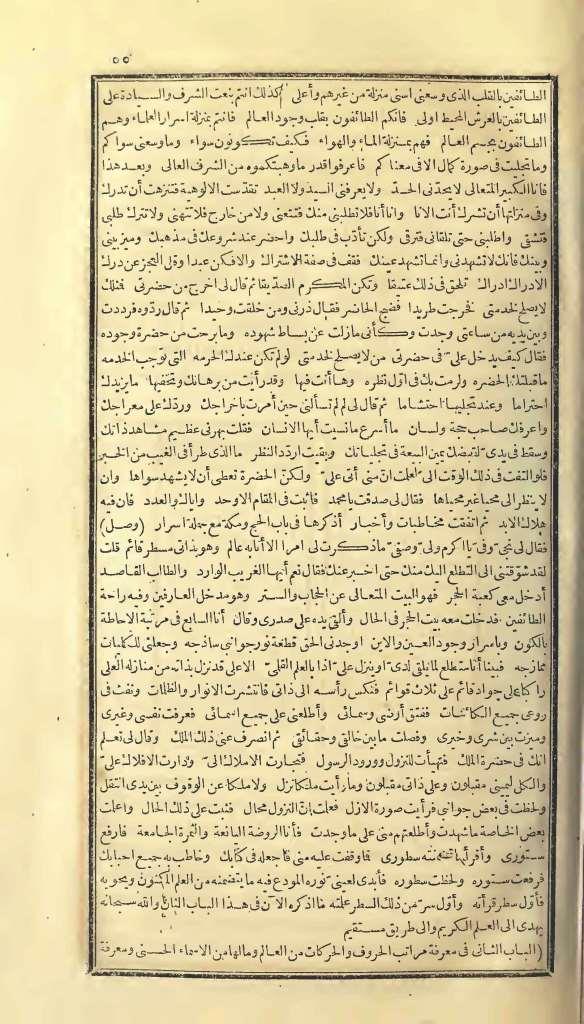 ٥٥
الطائفين بالقلب الذى وسعنى اسنى منزلة من غيرهم وأعلى كذلك انتم بنعت الشرف والسيادة على
الطائفين بالعرش المحيط اولى فانكم الطائفون بقلب وجود العالم فانتم بمنزلة اسرار العلماء وهم
الطائفون بجسم العالم فهم بمنزلة الماء والهواء فكيف تكونون سواء وما وسعنى سواكم
وما تجليت فى صورة كمال الا فى معناكم فاعرفوا قدر ما وهبتكموه من الشرف العالى وبعد هذا
فانا الكبير المتعالى لا يحدنى الحد ولا يعرفنى السيد ولا العبد تقدست الالوهية فتنزهت أن تدرك
وفى منزلتها أن تشرك أنت الانا وانا أنا فلا تطلبنى منك فتتعنى ولا من خارج فلا تتهنى ولا تترك طلبى
فتشقى واطلبنى حتى تلقانى فترقى ولكن تأدب فى طلبك واحضر عند شروعك فى مذهبك وميز بينى
وبينك فانك لا تشهدنى وانما تشهد عينك فقف فى صفة الاشتراك والا فكن عبدا وقل العجز عن درك
الادراك ادراك تلحق فى ذلك عتيقا وتكن المكرم الصديقا ثم قال لى اخرج من حضرتى فمثلك
لا يصلح لخدمتى فخرجت طريدا فضج الحاضر فقال ذرنى ومن خلقت وحيدا ثم قال ردوه فرددت
وبين يديه من ساعتى وجدت وكأنى مازلت عن بساط شهوده وما برحت من حضرة وجوده
فقال كيف يدخل على فى حضرتى من لا يصلح لخدمتى لو لم تكن عندك الحرمه التى توجب الخدمه
ما قبلتك الحضره ولرمت بك فى اول نظره وها أنت فيها وقد رأيت من برهانك وتحفيها ما يزيدك
احتراما وعند تجليها احتشاما ثم قال لى لم لم تسألنى حين أمرت باخراجك وردك على معراجك
واعرفك صاحب حجة ولسان ما أسرع ما نسيت أيها الانسان فقلت بهرنى عظيم مشاهد ذاتك
وسقط فى يدى لقبضك يمين البيعة فى تجلياتك وبقيت اردد النظر ما الذى طرأ فى الغيب من الخبر
فلو التفت فى ذلك الوقت الى لعلمت أن منى أتى على ولكن الحضرة تعطى أن لا يشهد سواها وان
لا ينظر الى محيا غير محياها فقال لى صدقت يا محمد فاثبت فى المقام الاوحد واياك والعدد فان فيه
هلاك الابد ثم اتفقت مخاطبات وأخبار أذكرها فى باب الحج ومكة مع جملة اسرار (وصل)
فقال لى نجيى وفى يا اكرم ولى وصفى ما ذكرت لى امرا الا أنا به عالم وهو بذاتى مسطر قائم قلت
لقد شوقتنى الى التطلع اليك منك حتى اخبر عنك فقال نعم أيها الغريب الوارد والطالب القاصد
أدخل معى كعبة الحجر فهو البيت المتعالى عن الحجاب والستر وهو مدخل العارفين وفيه راحة
الطائفين فدخلت معه بيت الحجر فى الحال وألقى يده على صدرى وقال أنا السابع فى مرتبة الاحاطة
بالكون وباسرار وجود العين والاين اوجدنى الحق قطعة نور حوائى ساذجه وجعلنى للكليات
ممازجه فبينا أنا متطلع لما يلقى لدى او ينزل على اذا بالعلم القلمى الاعلى قد نزل بذاته من منازله العلى
راكبا على جواد قائم على ثلاث قوائم فنكس رأسه الى ذاتى فانتشرت الانوار والظلمات ونفث فى
روعى جميع الكائنات ففتق أرضى وسمائى وأطلعنى على جميع اسمائى فعرفت نفسى وغيرى
وميزت بين شرى وخيرى وفصلت ما بين خالقى وحقائقى ثم انصرف عنى ذلك الملك وقال لى تعلم
انك فى حضرة الملك فتهيأت للنزول وورود الرسول فتجارت الاملاك الى ودارت الافلاك على
والكل ليمينى مقبلون وعلى ذاتى مقبلون وما رأيت ملكا نزل ولا ملكا عن الوقوف بين يدى انتقل
ولحظت فى بعض جوانبى فرأيت صورة الازل فعلمت ان النزول محال فثبت على ذلك الحال واعلمت
بعض الخاصة ما شهدت وأطلعتهم منى على ما وجدت فأنا الروضة اليانعة والثمرة الجامعة فارفع
ستورى وأقرأ ما تضمنته سطورى فما وقفت عليه منى فاجعله فى كتابك وخاطب به جميع احبابك
فرفعت ستوره ولحظت سطوره فأبدى لعينى نوره المودع فيه ما يتضمنه من العلم المكنون ويحويه
فأول سطر قرأته وأول سر من ذلك السطر علمته ما أذكره الآن فى هذا الباب الثانى والله سبحانه
يهدى الى العلم الكريم والى طريق مستقيم
(الباب الثانى فى معرفة مراتب الحروف والحركات من العالم وما لها من الاسماء الحسنى ومعرفة